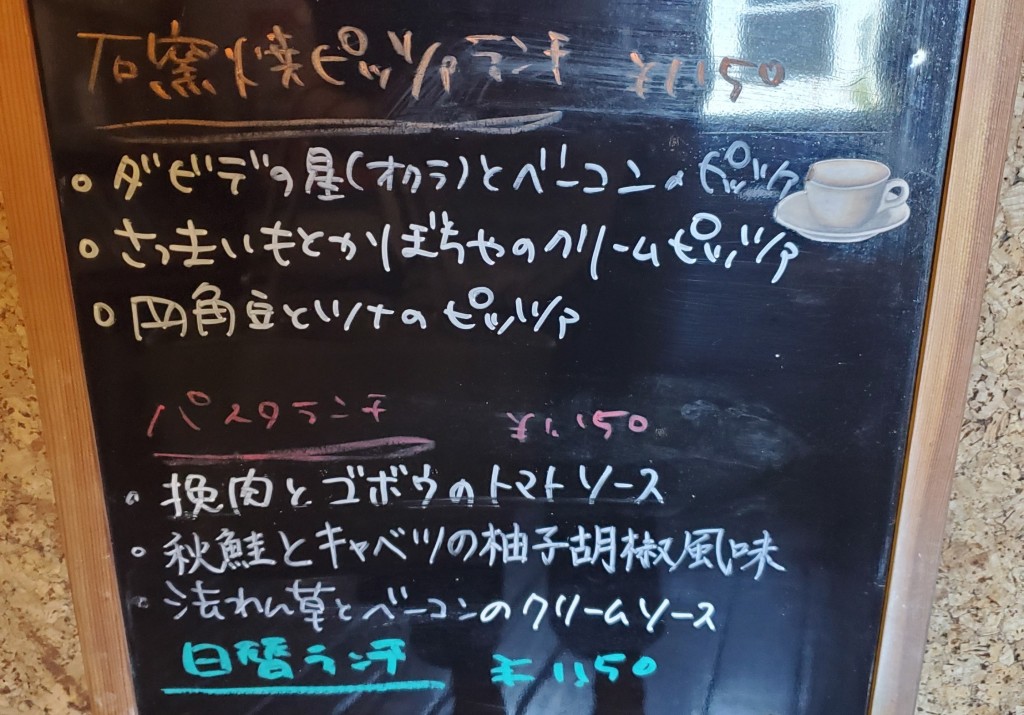 石窯焼ピッツァランチ ¥1,150
ダビデの星(オクラ)とベーコンのピッツァ
さつまいもとかぼちゃのクリームピッツァ
四角豆とツナのピッツァ
パスタランチ ¥1,150
挽肉とゴボウのトマトソース
秋鮭とキャベツの柚子胡椒風味
法れん草とベーコンのクリームソース
日替ランチ ¥1,150